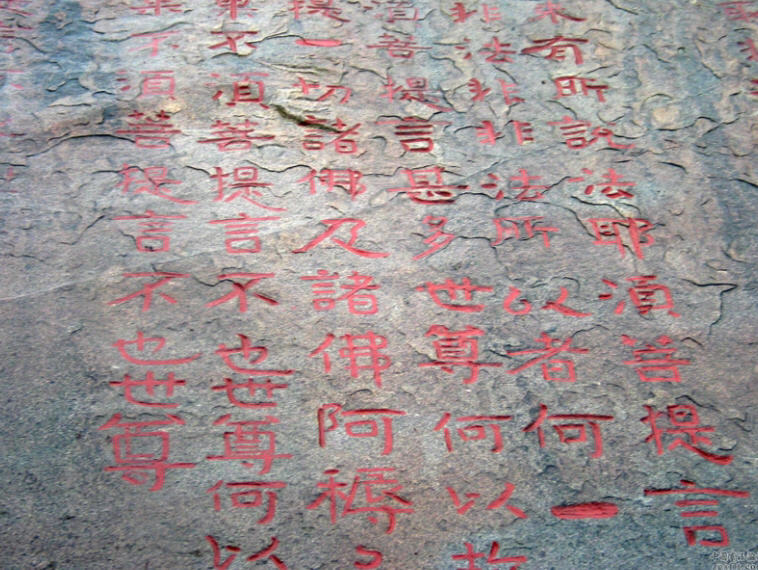 來有所說法耶須菩提言
非法非非法所以者何一
須菩提言甚多世尊何以故
提一切諸佛及諸佛阿耨
果不須菩提言不也世尊何以
果不須菩提言不也世尊